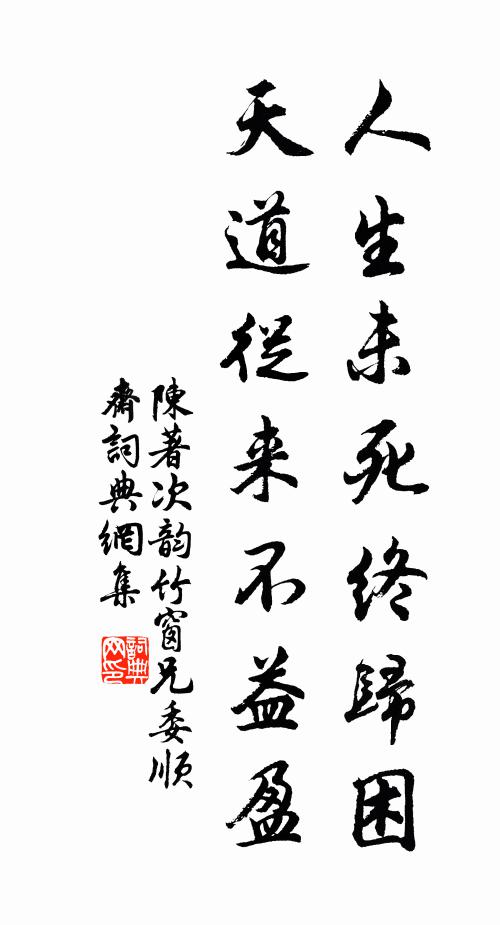 人生未死終歸困
天道從来不益盈
陳著次韵竹窗兄委順
齋詞典網集
詞典网印